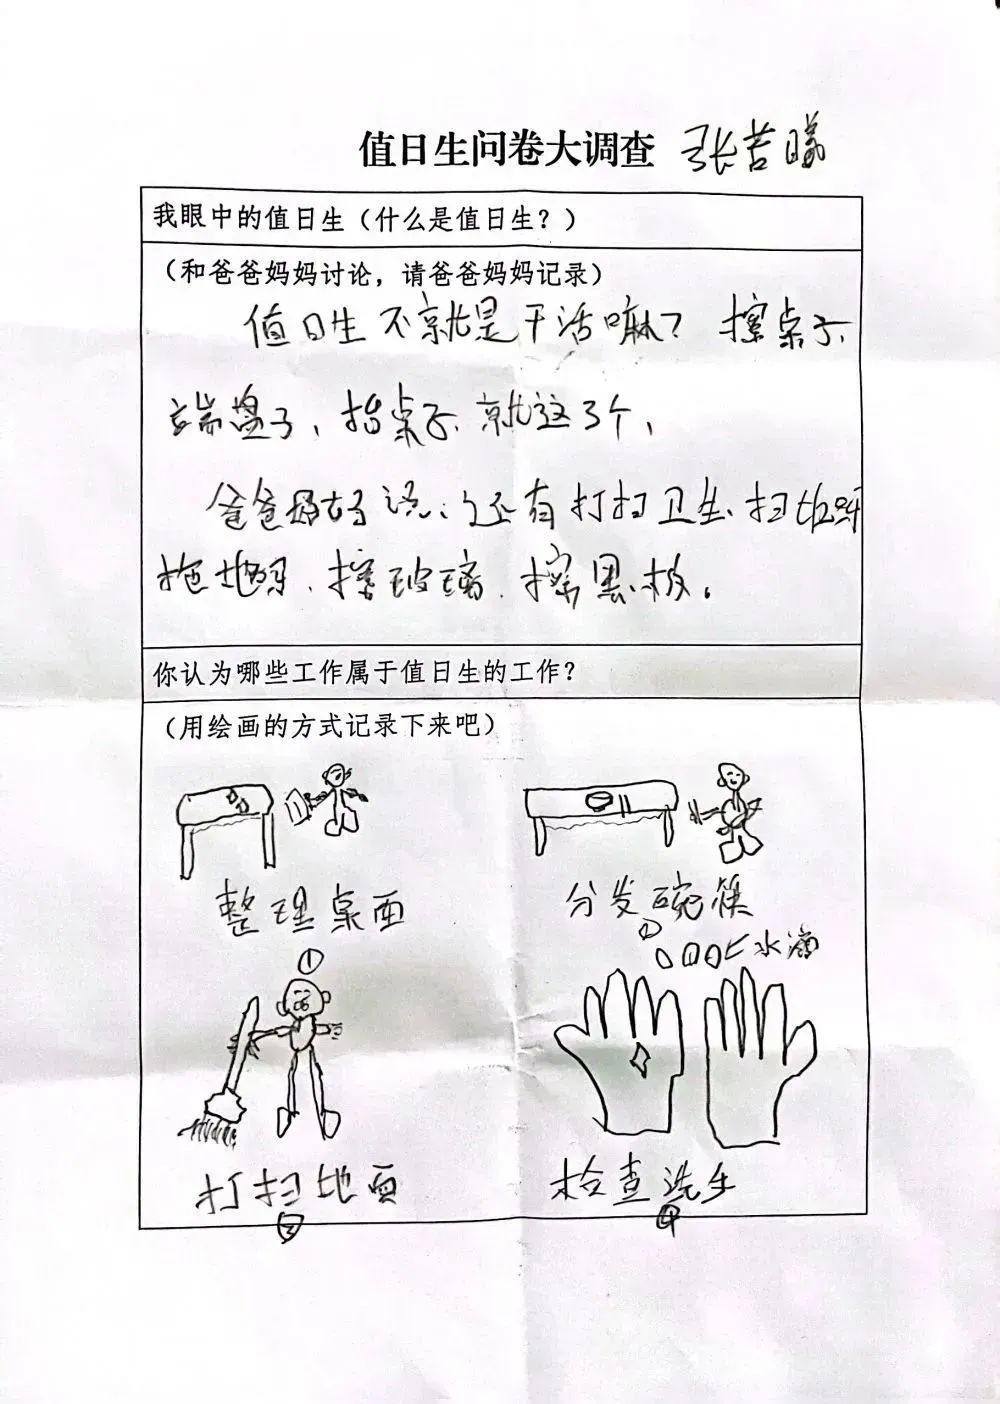 值日生问卷大调查 张若曦
我眼中的值日生（什么是值日生？）
（和爸爸妈妈讨论，请爸爸妈妈记录）
值日生不就是干活嘛？擦桌子、
端盘子、抬桌子、就这3个、
爸爸妈妈说：还有打扫卫生、扫地呀
拖地呀、擦玻璃、擦黑板。
你认为哪些工作属于值日生的工作？
（用绘画的方式记录下来吧）
整理桌面
分发碗筷
①
②
水滴
打扫地面
检查洗手
③
④